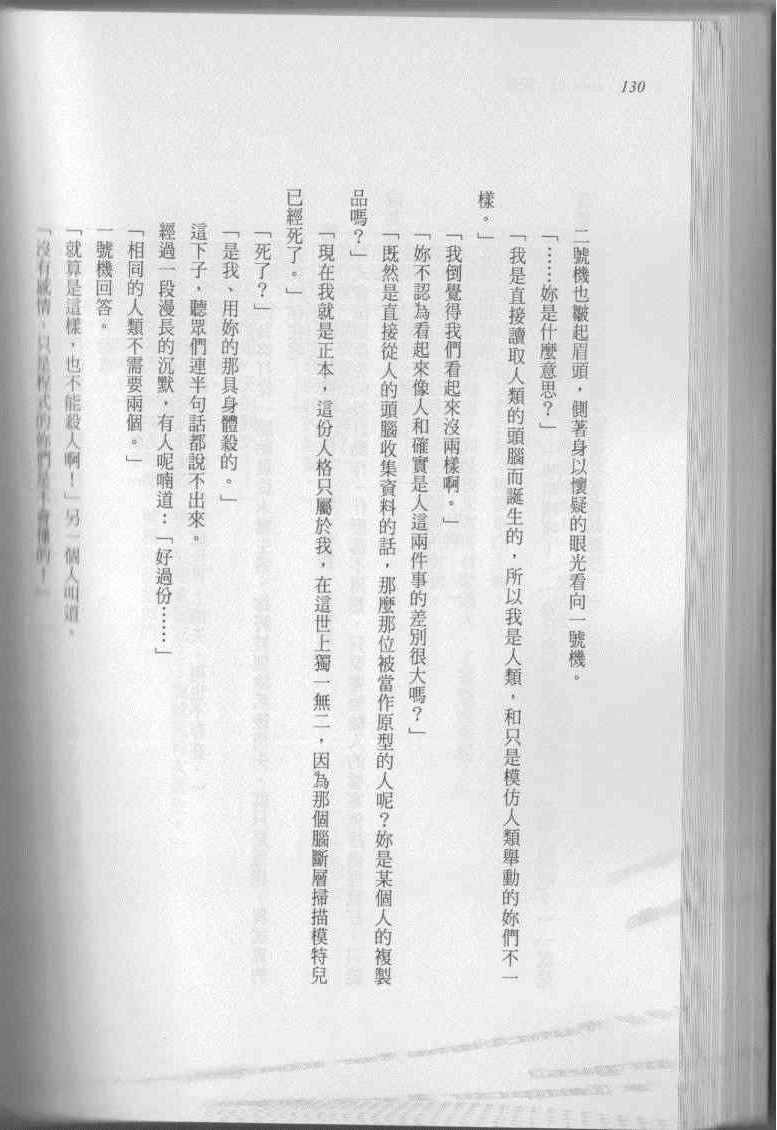 130
二號機也皺起眉頭，側著身以懷疑的眼光看向一號機。
「……妳是什麼意思？」
「我是直接讀取人類的頭腦而誕生的，所以我是人類，和只是模仿人類舉動的妳們不一
樣。」
「我倒覺得我們看起來沒兩樣啊。」
「妳不認為看起來像人和確實是人這兩件事的差別很大嗎？」
「既然是直接從人的頭腦收集資料的話，那麼那位被當作原型的人呢？妳是某個人的複製
品嗎？」
「現在我就是正本，這份人格只屬於我，在這世上獨一無二，因為那個腦斷層掃描模特兒
已經死了。」
「死了？」
「是我、用妳的那具身體殺的。」
這下子，聽眾們連半句話都說不出來。
經過一段漫長的沉默，有人呢喃道：「好過份……」
「相同的人類不需要兩個。」
一號機回答。
「就算是這樣，也不能殺人啊！」另一個人叫道。
「沒有感情，只是程式的妳們是不會懂的！」